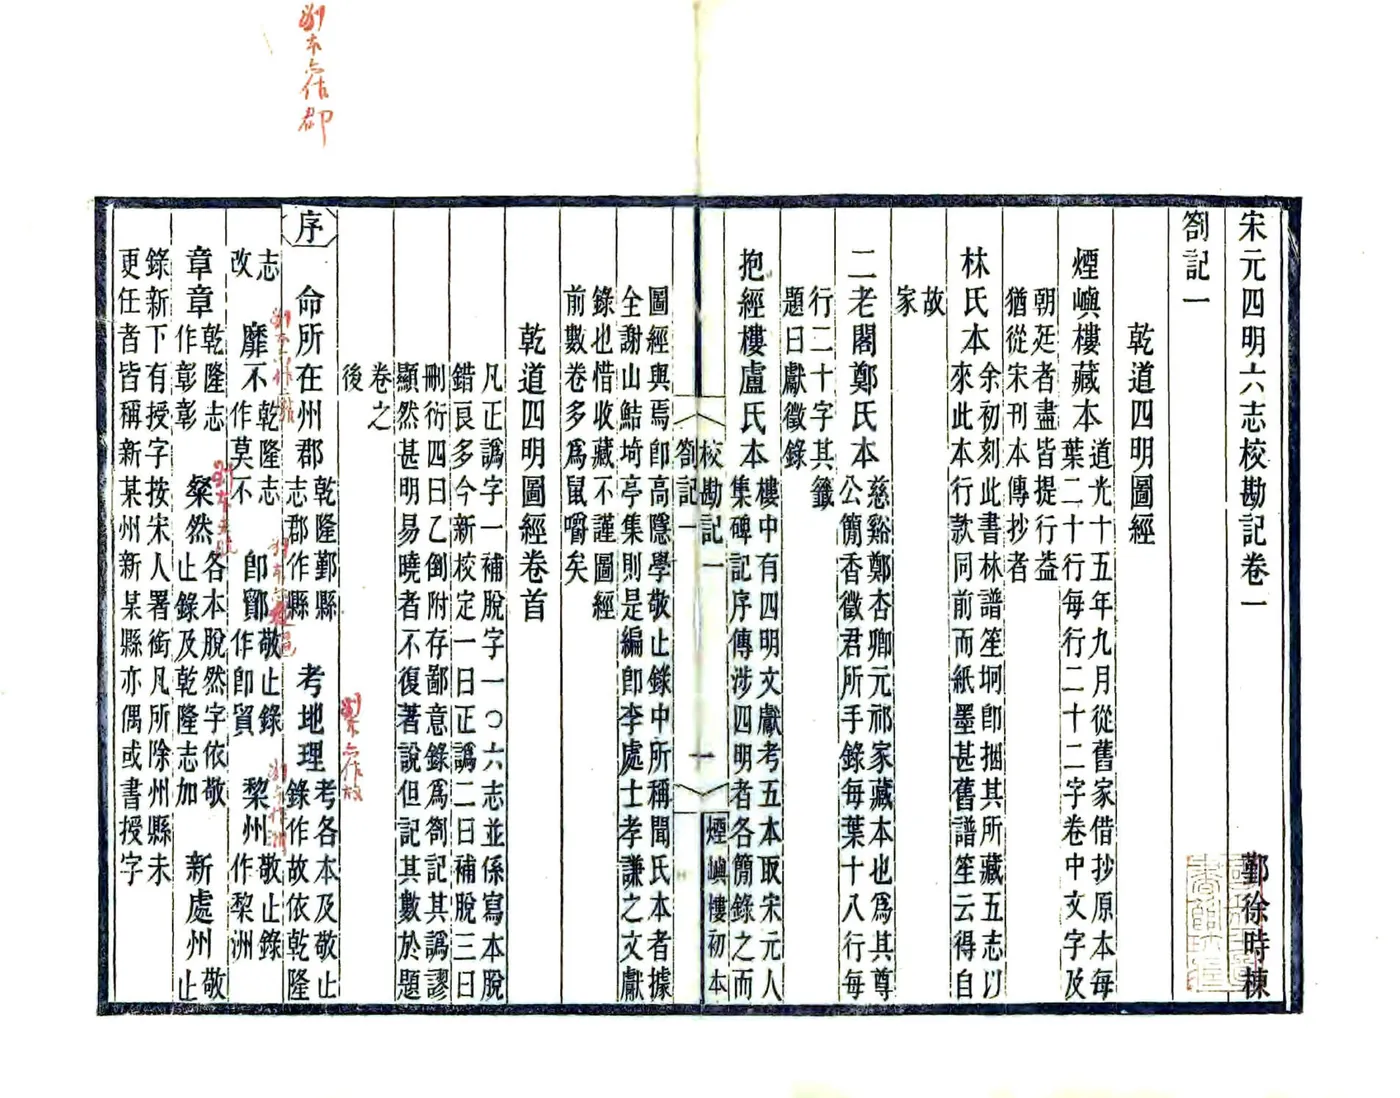 宋元四明六志校勘記卷一
鄞徐時棟
劄記一
乾道四明圖經
煙嶼樓藏本
道光十五年九月從舊家借抄原本每
葉二十行每行二十二字卷中文字及
朝廷者盡皆提行葢
猶從宋刊本傳抄者
林氏本
余初刻此書林譜笙坰卽捆其所藏五志以
來此本行款同前而紙墨甚舊譜笙云得自
故
家
二老閣鄭氏本
慈谿鄭杏卿元祁家藏本也爲其尊
公簡香徵君所手錄每葉十八行每
行二十字其籤
題曰獻徵錄
抱經樓盧氏本
樓中有四明文獻考五本取宋元人
集碑記序傳涉四明者各簡錄之而
校勘記一
劄記一
一
煙嶼樓初本
圖經與焉卽高隱學敬止錄中所稱聞氏本者據
全謝山鮚埼亭集則是編卽李處士孝謙之文獻
錄也惜收藏不謹圖經
前數卷多爲鼠嚼矣
乾道四明圖經卷首
凡正譌字一補脫字一〇六志並係寫本脫
錯良多今新校定一曰正譌二曰補脫三曰
刪衍四曰乙倒附存鄙意錄爲劄記其譌謬
顯然甚明易曉者不復著說但記其數於題
卷之
後
劉本亦作故
劉本亦作郡
序
命所在州郡
乾隆鄞縣
志郡作縣
考地理
考各本及敬止
錄作故依乾隆
志
改
靡不
乾隆志
作莫不
卽鄮
敬止錄
作卽貿
棃州
敬止錄
作棃洲
劉本作洲
章章
乾隆志
作彰彰
粲然
各本脫然字依敬
止錄及乾隆志加
新處州
敬
止
錄新下有授字按宋人署銜凡所除州縣未
更任者皆稱新某州新某縣亦偶或書授字